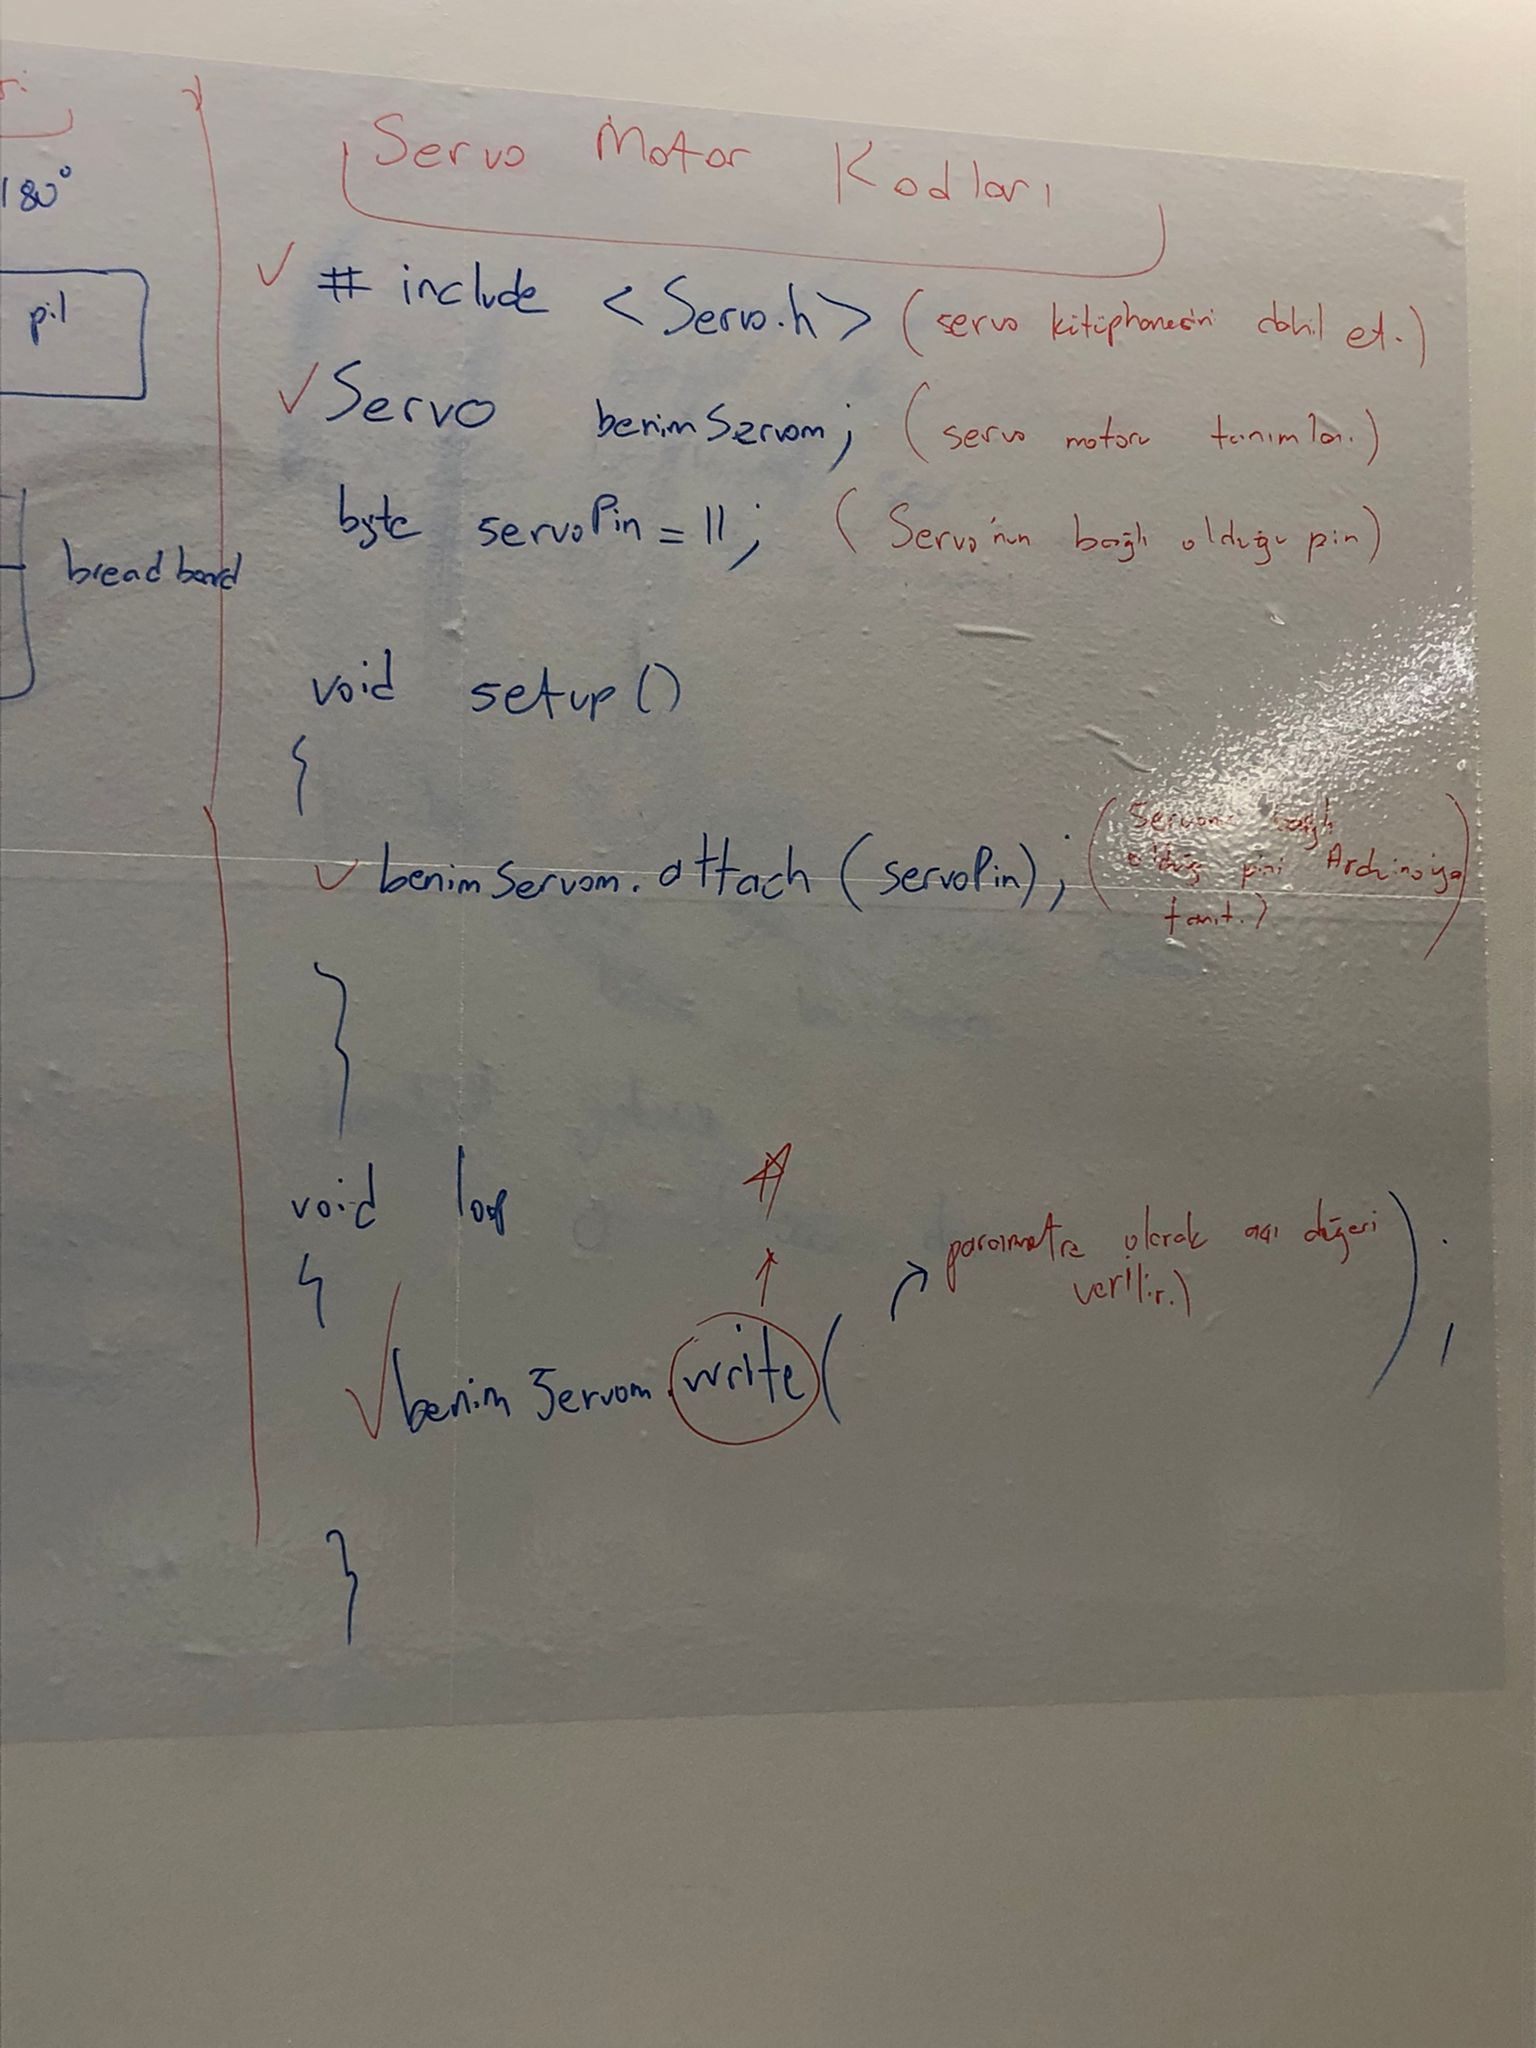 180°
pil
breadboard
Servo Motor Kodları
# include <Servo.h> (servo kütüphanesini dahil et.)
Servo benimServom; (servo motoru tanımlar.)
byte servoPin = 11; (Servo'nun bağlı olduğu pin)
void setup ()
{
benimServom.attach (servoPin); (Servonun bağlı
olduğu pini Arduino'ya
tanıt.)
}
void loop
{
parametre olarak açı değeri
verilir.)
benimServom.write( );
}